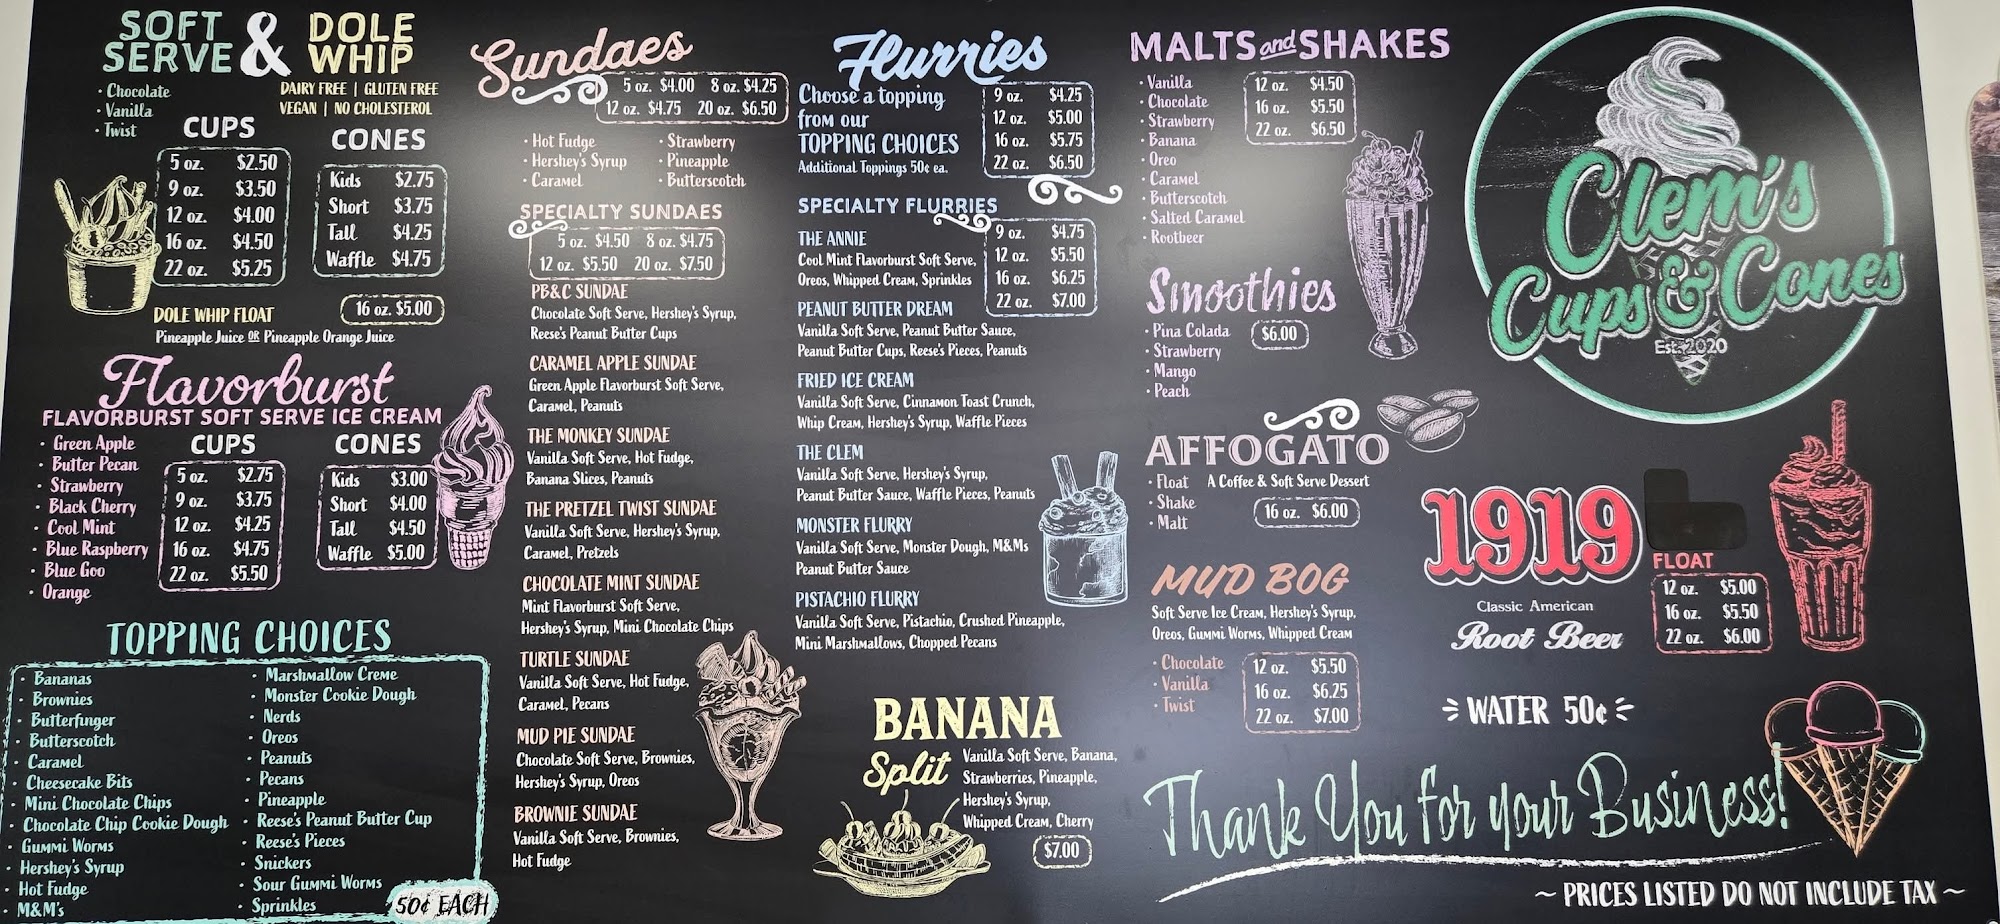 SOFT SERVE & DOLE WHIP
DAIRY FREE | GLUTEN FREE
VEGAN | NO CHOLESTEROL
· Chocolate
· Vanilla
· Twist
CUPS
5 oz. $2.50
9 oz. $3.50
12 oz. $4.00
16 oz. $4.50
22 oz. $5.25
CONES
Kids $2.75
Short $3.75
Tall $4.25
Waffle $4.75
DOLE WHIP FLOAT 16 oz. $5.00
Pineapple Juice OR Pineapple Orange Juice
Flavorburst
FLAVORBURST SOFT SERVE ICE CREAM
· Green Apple
· Butter Pecan
· Strawberry
· Black Cherry
· Cool Mint
· Blue Raspberry
· Blue Goo
· Orange
CUPS
5 oz. $2.75
9 oz. $3.75
12 oz. $4.25
16 oz. $4.75
22 oz. $5.50
CONES
Kids $3.00
Short $4.00
Tall $4.50
Waffle $5.00
TOPPING CHOICES
· Bananas
· Brownies
· Butterfinger
· Butterscotch
· Caramel
· Cheesecake Bits
· Mini Chocolate Chips
· Chocolate Chip Cookie Dough
· Gummi Worms
· Hershey's Syrup
· Hot Fudge
· M&M's
· Marshmallow Creme
· Monster Cookie Dough
· Nerds
· Oreos
· Peanuts
· Pecans
· Pineapple
· Reese's Peanut Butter Cup
· Reese's Pieces
· Snickers
· Sour Gummi Worms
· Sprinkles
50¢ EACH
Sundaes
5 oz. $4.00 8 oz. $4.25
12 oz. $4.75 20 oz. $6.50
· Hot Fudge
· Hershey's Syrup
· Caramel
· Strawberry
· Pineapple
· Butterscotch
SPECIALTY SUNDAES
5 oz. $4.50 8 oz. $4.75
12 oz. $5.50 20 oz. $7.50
PB&C SUNDAE
Chocolate Soft Serve, Hershey's Syrup,
Reese's Peanut Butter Cups
CARAMEL APPLE SUNDAE
Green Apple Flavorburst Soft Serve,
Caramel, Peanuts
THE MONKEY SUNDAE
Vanilla Soft Serve, Hot Fudge,
Banana Slices, Peanuts
THE PRETZEL TWIST SUNDAE
Vanilla Soft Serve, Hershey's Syrup,
Caramel, Pretzels
CHOCOLATE MINT SUNDAE
Mint Flavorburst Soft Serve,
Hershey's Syrup, Mini Chocolate Chips
TURTLE SUNDAE
Vanilla Soft Serve, Hot Fudge,
Caramel, Pecans
MUD PIE SUNDAE
Chocolate Soft Serve, Brownies,
Hershey's Syrup, Oreos
BROWNIE SUNDAE
Vanilla Soft Serve, Brownies,
Hot Fudge
Flurries
Choose a topping
from our
TOPPING CHOICES
Additional Toppings 50¢ ea.
9 oz. $4.25
12 oz. $5.00
16 oz. $5.75
22 oz. $6.50
SPECIALTY FLURRIES
9 oz. $4.75
12 oz. $5.50
16 oz. $6.25
22 oz. $7.00
THE ANNIE
Cool Mint Flavorburst Soft Serve,
Oreos, Whipped Cream, Sprinkles
PEANUT BUTTER DREAM
Vanilla Soft Serve, Peanut Butter Sauce,
Peanut Butter Cups, Reese's Pieces, Peanuts
FRIED ICE CREAM
Vanilla Soft Serve, Cinnamon Toast Crunch,
Whip Cream, Hershey's Syrup, Waffle Pieces
THE CLEM
Vanilla Soft Serve, Hershey's Syrup,
Peanut Butter Sauce, Waffle Pieces, Peanuts
MONSTER FLURRY
Vanilla Soft Serve, Monster Dough, M&Ms
Peanut Butter Sauce
PISTACHIO FLURRY
Vanilla Soft Serve, Pistachio, Crushed Pineapple,
Mini Marshmallows, Chopped Pecans
BANANA
Split
Vanilla Soft Serve, Banana,
Strawberries, Pineapple,
Hershey's Syrup,
Whipped Cream, Cherry
$7.00
MALTS and SHAKES
· Vanilla
· Chocolate
· Strawberry
· Banana
· Oreo
· Caramel
· Butterscotch
· Salted Caramel
· Rootbeer
12 oz. $4.50
16 oz. $5.50
22 oz. $6.50
Smoothies
· Pina Colada
· Strawberry
· Mango
· Peach
$6.00
AFFOGATO
A Coffee & Soft Serve Dessert
· Float
· Shake
· Malt
16 oz. $6.00
MUD BOG
Soft Serve Ice Cream, Hershey's Syrup,
Oreos, Gummi Worms, Whipped Cream
· Chocolate
· Vanilla
· Twist
12 oz. $5.50
16 oz. $6.25
22 oz. $7.00
Clem's
Cups & Cones
Est. 2020
1919
Classic American
Root Beer
FLOAT
12 oz. $5.00
16 oz. $5.50
22 oz. $6.00
WATER 50¢
Thank You for your Business!
~ PRICES LISTED DO NOT INCLUDE TAX ~